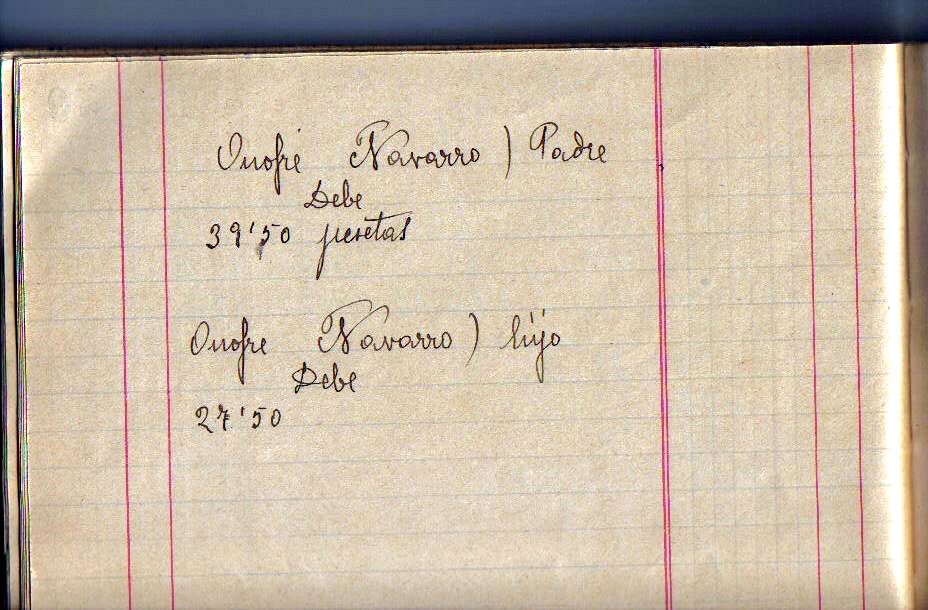 Onofre Navarro ) Padre
Debe
39'50 pesetas
Onofre Navarro ) hijo
Debe
27'50